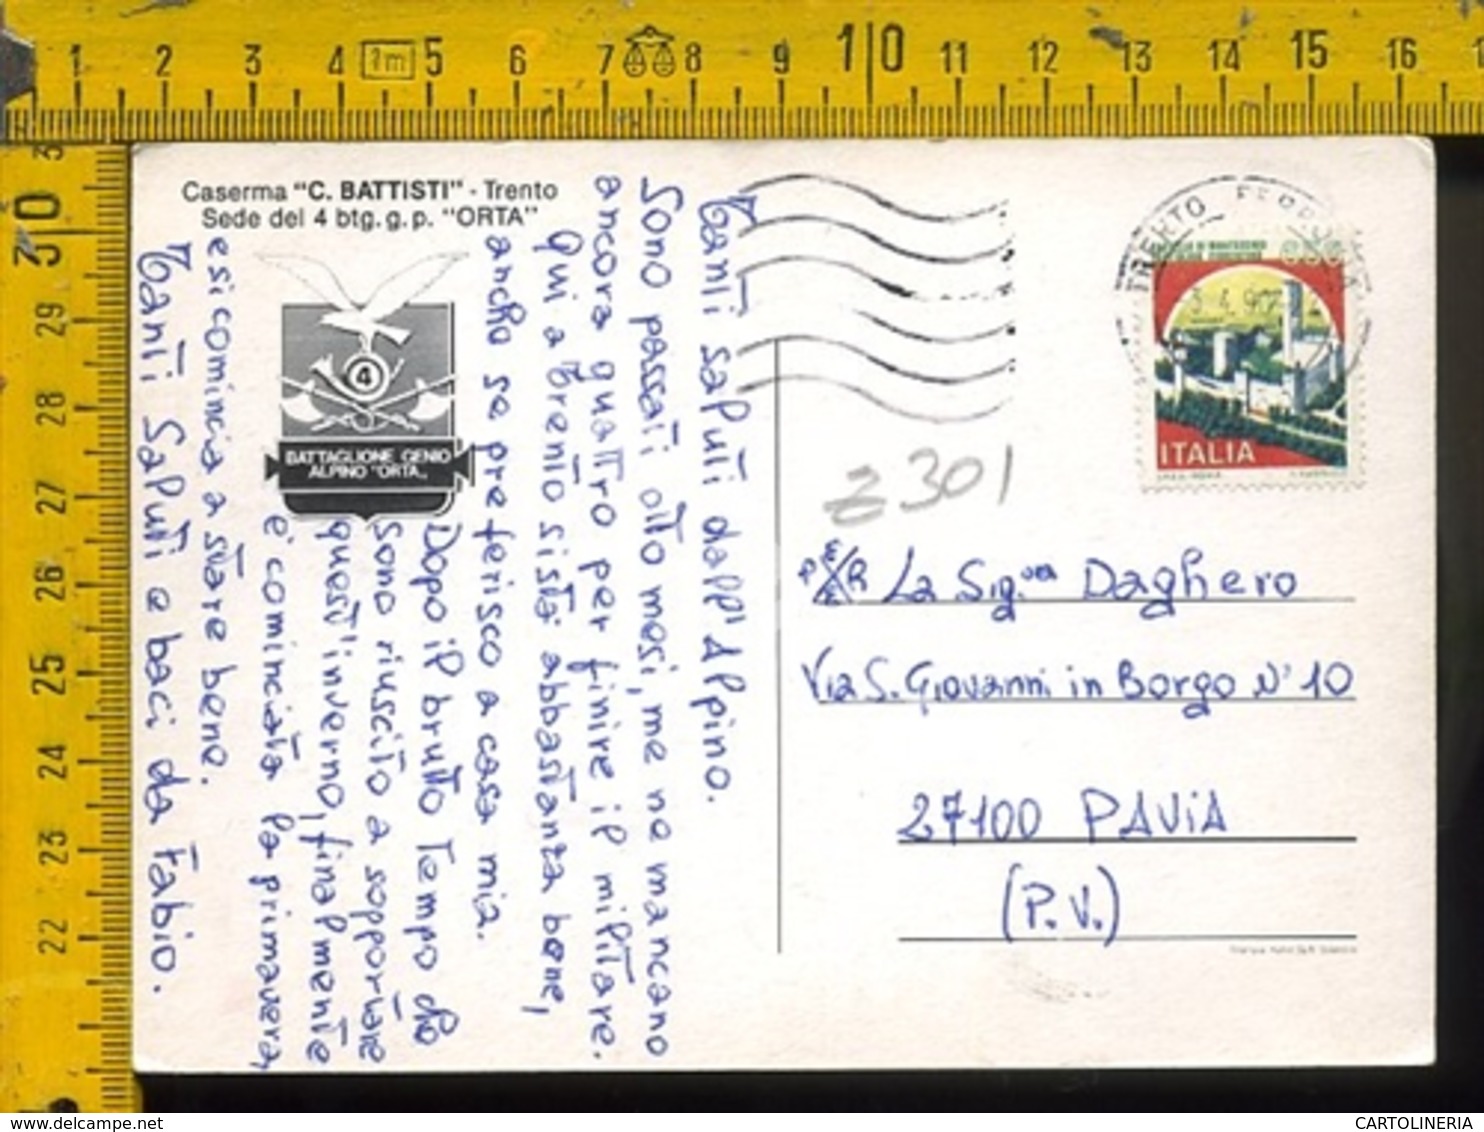 1 2 3 4 1m 5 6 7 8 9 10 11 12 13 14 15 16
30 29 28 27 26 25 24 23 22
Caserma "C. BATTISTI" - Trento
Sede del 4 btg. g. p. "ORTA"
4
BATTAGLIONE GENIO
ALPINO "ORTA"
Tanti saluti dall'Alpino.
Sono passati otto mesi, me ne mancano
ancora quattro per finire il militare.
Qui a Trento si sta abbastanza bene,
anche se preferisco a casa mia.
Dopo il brutto tempo che
sono riuscito a sopportare
quest'inverno, finalmente
è cominciata la primavera,
e si comincia a stare bene.
Tanti saluti e baci da Fabio.
TRENTO FERROVIA
ITALIA
z 301
La Sig.ra Daghero
Via S. Giovanni in Borgo N° 10
27100 PAVIA
(P.V.)
CARTOLINERIA